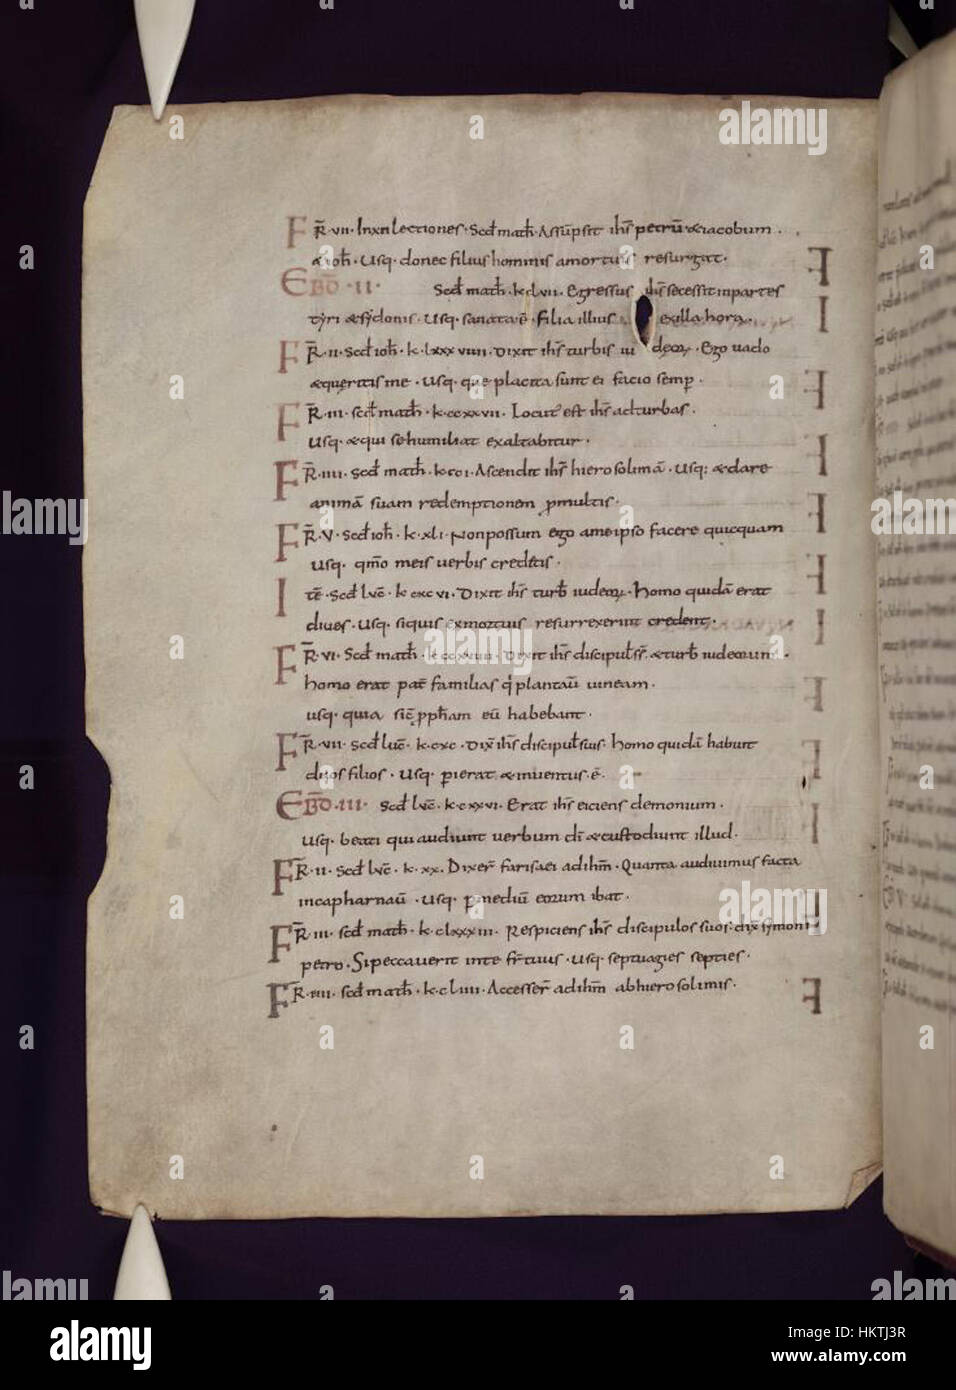 FR̄. VII. In XII Lectiones. Scd̄ math̄. Assūpsit ih̄s petrū & iacobum.
& ioh̄. Usq. donec filius hominis a mortuis resurgat.
EBD̄. II. Scd̄ math̄. k. clvii. Egressus ih̄s secessit in partes
tyri & sydonis. Usq. sanata ē. filia illius ex illa hora.
FR̄. II. Scd̄ ioh̄. k. lxxxviiii. Dixit ih̄s turbis iudeoꝝ. Ego vado
& queritis me. Usq. que placita sunt ei facio semp̄.
FR̄. III. scd̄ math̄. k. ccxxvii. Locut' est ih̄s ad turbas.
Usq. & qui se humiliat exaltabitur.
FR̄. IIII. Scd̄ math̄. k. cci. Ascendit ih̄s hierosolimā. Usq: & dare
animā suam redemptionem ꝓ multis.
FR̄. V. Scd̄ ioh̄. k. xli. Non possum ego a me ipso facere quicquam
Usq. qm̄o meis verbis credetis.
ITē. Scd̄ lvc̄. k. cxcvi. Dixit ih̄s turb̄ iudeoꝝ. Homo quidā erat
dives. Usq. si quis ex mortuis resurrexerint credent.
FR̄. VI. Scd̄ math̄. Dixit ih̄s discipul̄ s̄. & turb̄ iudeorum.
homo erat pat̄ familias q̄ plantaū vineam.
usq. quia sic̄ pph̄am eū habebant.
FR̄. VII. Scd̄ luc̄. k. cxc. Dix̄ ih̄s discipul̄ suis. Homo quidā habuit
duos filios. Usq. perierat & inventus ē.
EBD̄. III. Scd̄ lvc̄. k. cxxvi. Erat ih̄s eiciens demonium.
Usq. beati qui audiunt verbum dī & custodiunt illud.
FR̄. II. Scd̄ lvc̄. k. xx. Dixer̄ farisaei ad ih̄m. Quanta audivimus facta
in capharnaū. Usq. ꝑ mediū eorum ibat.
FR̄. III. scd̄ math̄. k. clxxxiii. Respiciens ih̄s discipulos suos. dix̄ symoni
petro. Si peccaverit in te fr̄ tuus. Usq. septuagies septies.
FR̄. IIII. scd̄ math̄. k. cliiii. Accesser̄ ad ih̄m ab hierosolimis.
alamy
Image ID: HKTJ3R
www.alamy.com